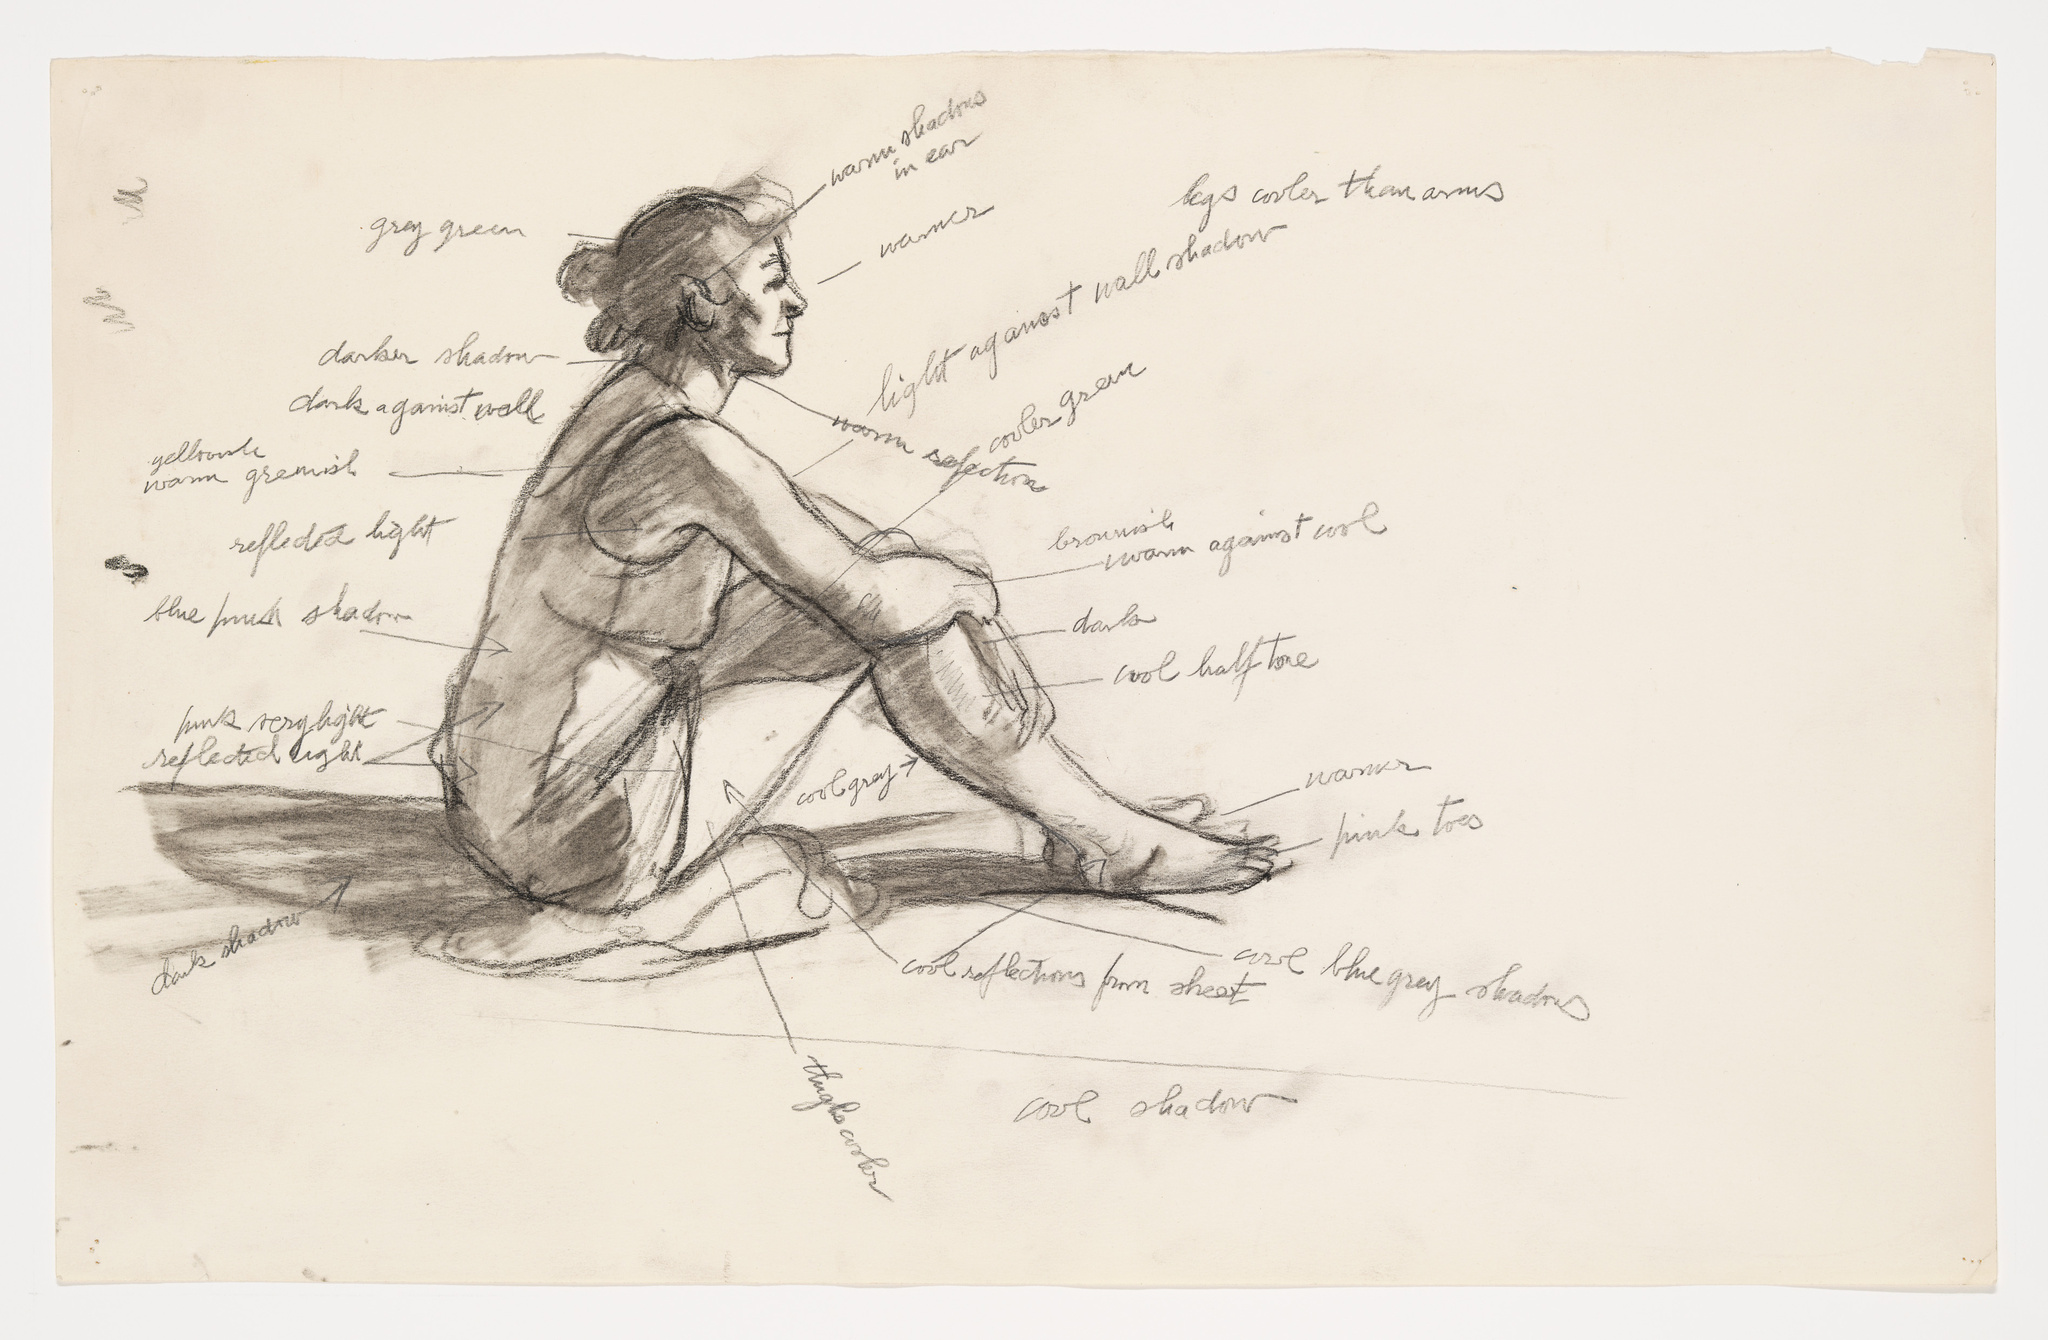 warm shadows
in ear
legs cooler than arms
grey green
warmer
light against wall shadow
darker shadow
dark against wall
cooler green
warm reflection
yellowish
warm greenish
reflected light
brownish
warm against cool
blue pink shadow
dark
cool halftone
pink very light
reflected light
cool grey
warmer
pink toes
dark shadow
cool reflections from sheet
cool blue grey shadows
thighs cooler
cool shadow